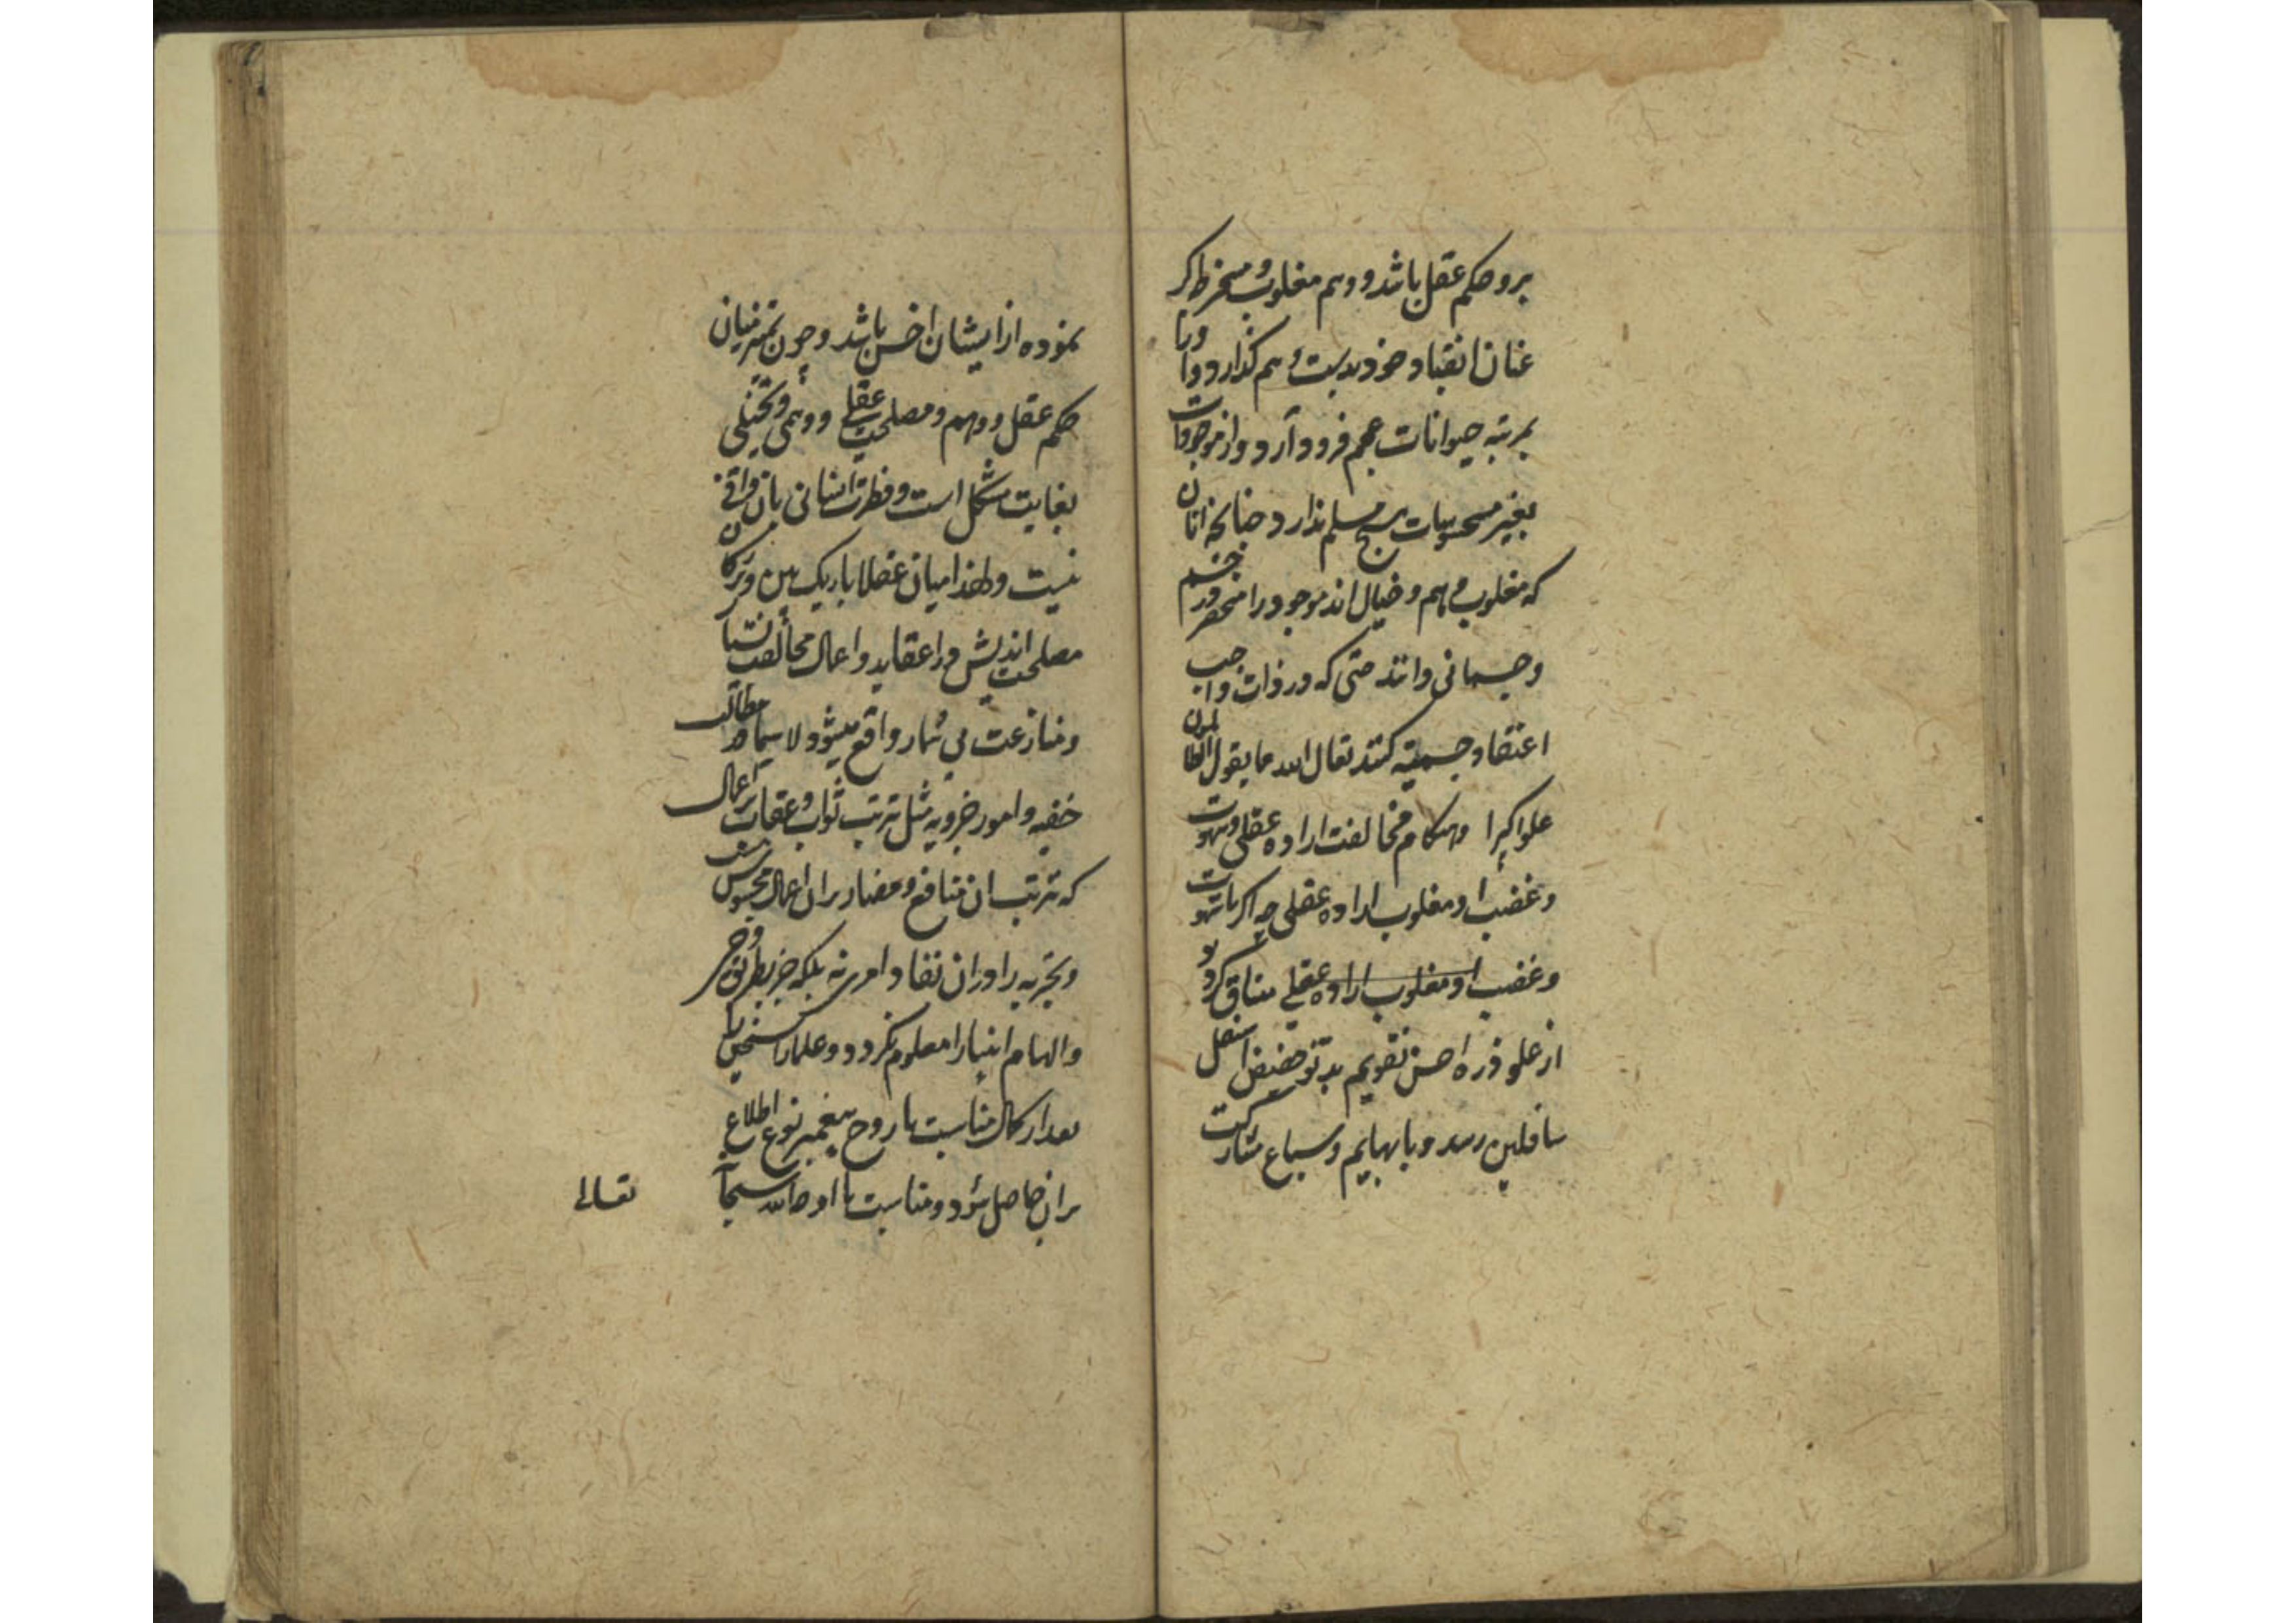 برو حکم عقل باشد و وهم مغلوب و مسخر و اکر
عنان انقیاد خود بدست وهم کذارد و او را
بمرتبه حیوانات عجم فرود آرد و از موجودات
بغیر محسوسات هیچ مسلم ندارد چنانچه آنان
که مغلوب وهم و خیال اند موجود را منحصر در جسم
و جسمانی دانند حتی که در ذات واجب
اعتقاد جسمیة کنند تعالی الله عما یقول الظالمون
علوا کبیرا و هنکام مخالفت اراده عقلی و شهوت
و غضب او مغلوب اراده عقلی چه اکر با شهوت
و غضب او مغلوب اراده عقلی منساق کردد
از علو ذروه احسن تقویم بدنو حضیض اسفل
سافلین رسد و با بهایم و سباع مشارکت
نموده از ایشان اخس باشد و چون تمیز میان
حکم عقل و وهم و مصلحت عقلی و وهمی و تخیلی
بغایت مشکل است و فطرت انسانی بان وافی
نیست و لهذا میان عقلا باریک بین و زیرکان
مصلحت اندیش در اعقاید و اعمال مخالفت بسیار
و منازعت بی شمار واقع میشود لا سیما در مطالب
خفیه و امور اخرویه مثل ترتب ثواب و عقاب بر اعمال
که ترتب ان منافع و مضار بران اعمال محسوس نیست
و تجربه را دران نفاد امری نه بلکه جز بطریق وحی
و الهام انبیا را معلوم نکردد و علما را سنخی یا
بعد از کمال مناسبت با روح پیغمبر نوع اطلاع
بران حاصل شود و مناسبت با او صا الله سبحانه
تعالی